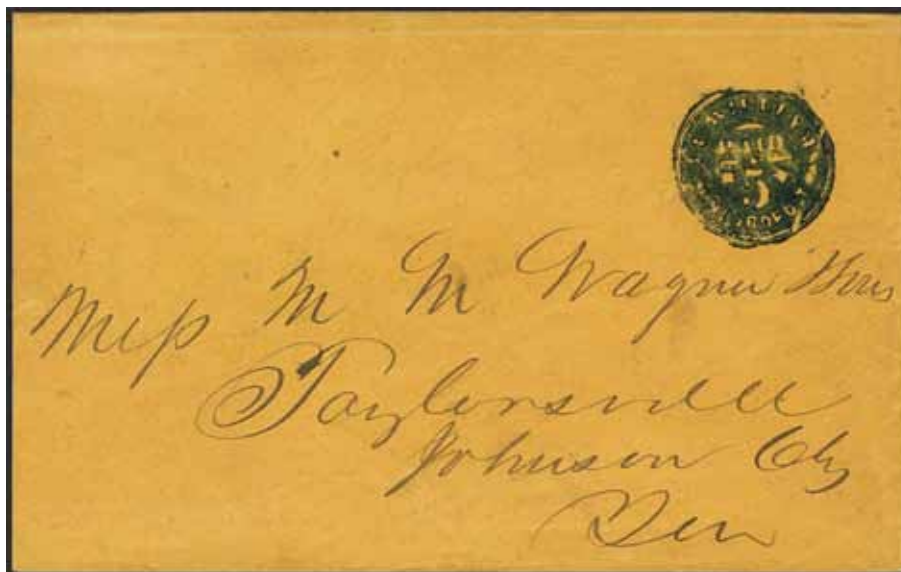 PAID
5
Mess M M Wagner
Taylorsville
Johnson Cty
Ten